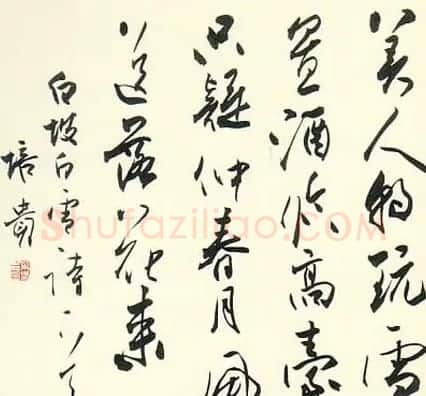 美人玩雪
置酒於高臺
只疑仲春月風
送落花来
白坡白雪诗一首
培貴
Shufaziliao.COM